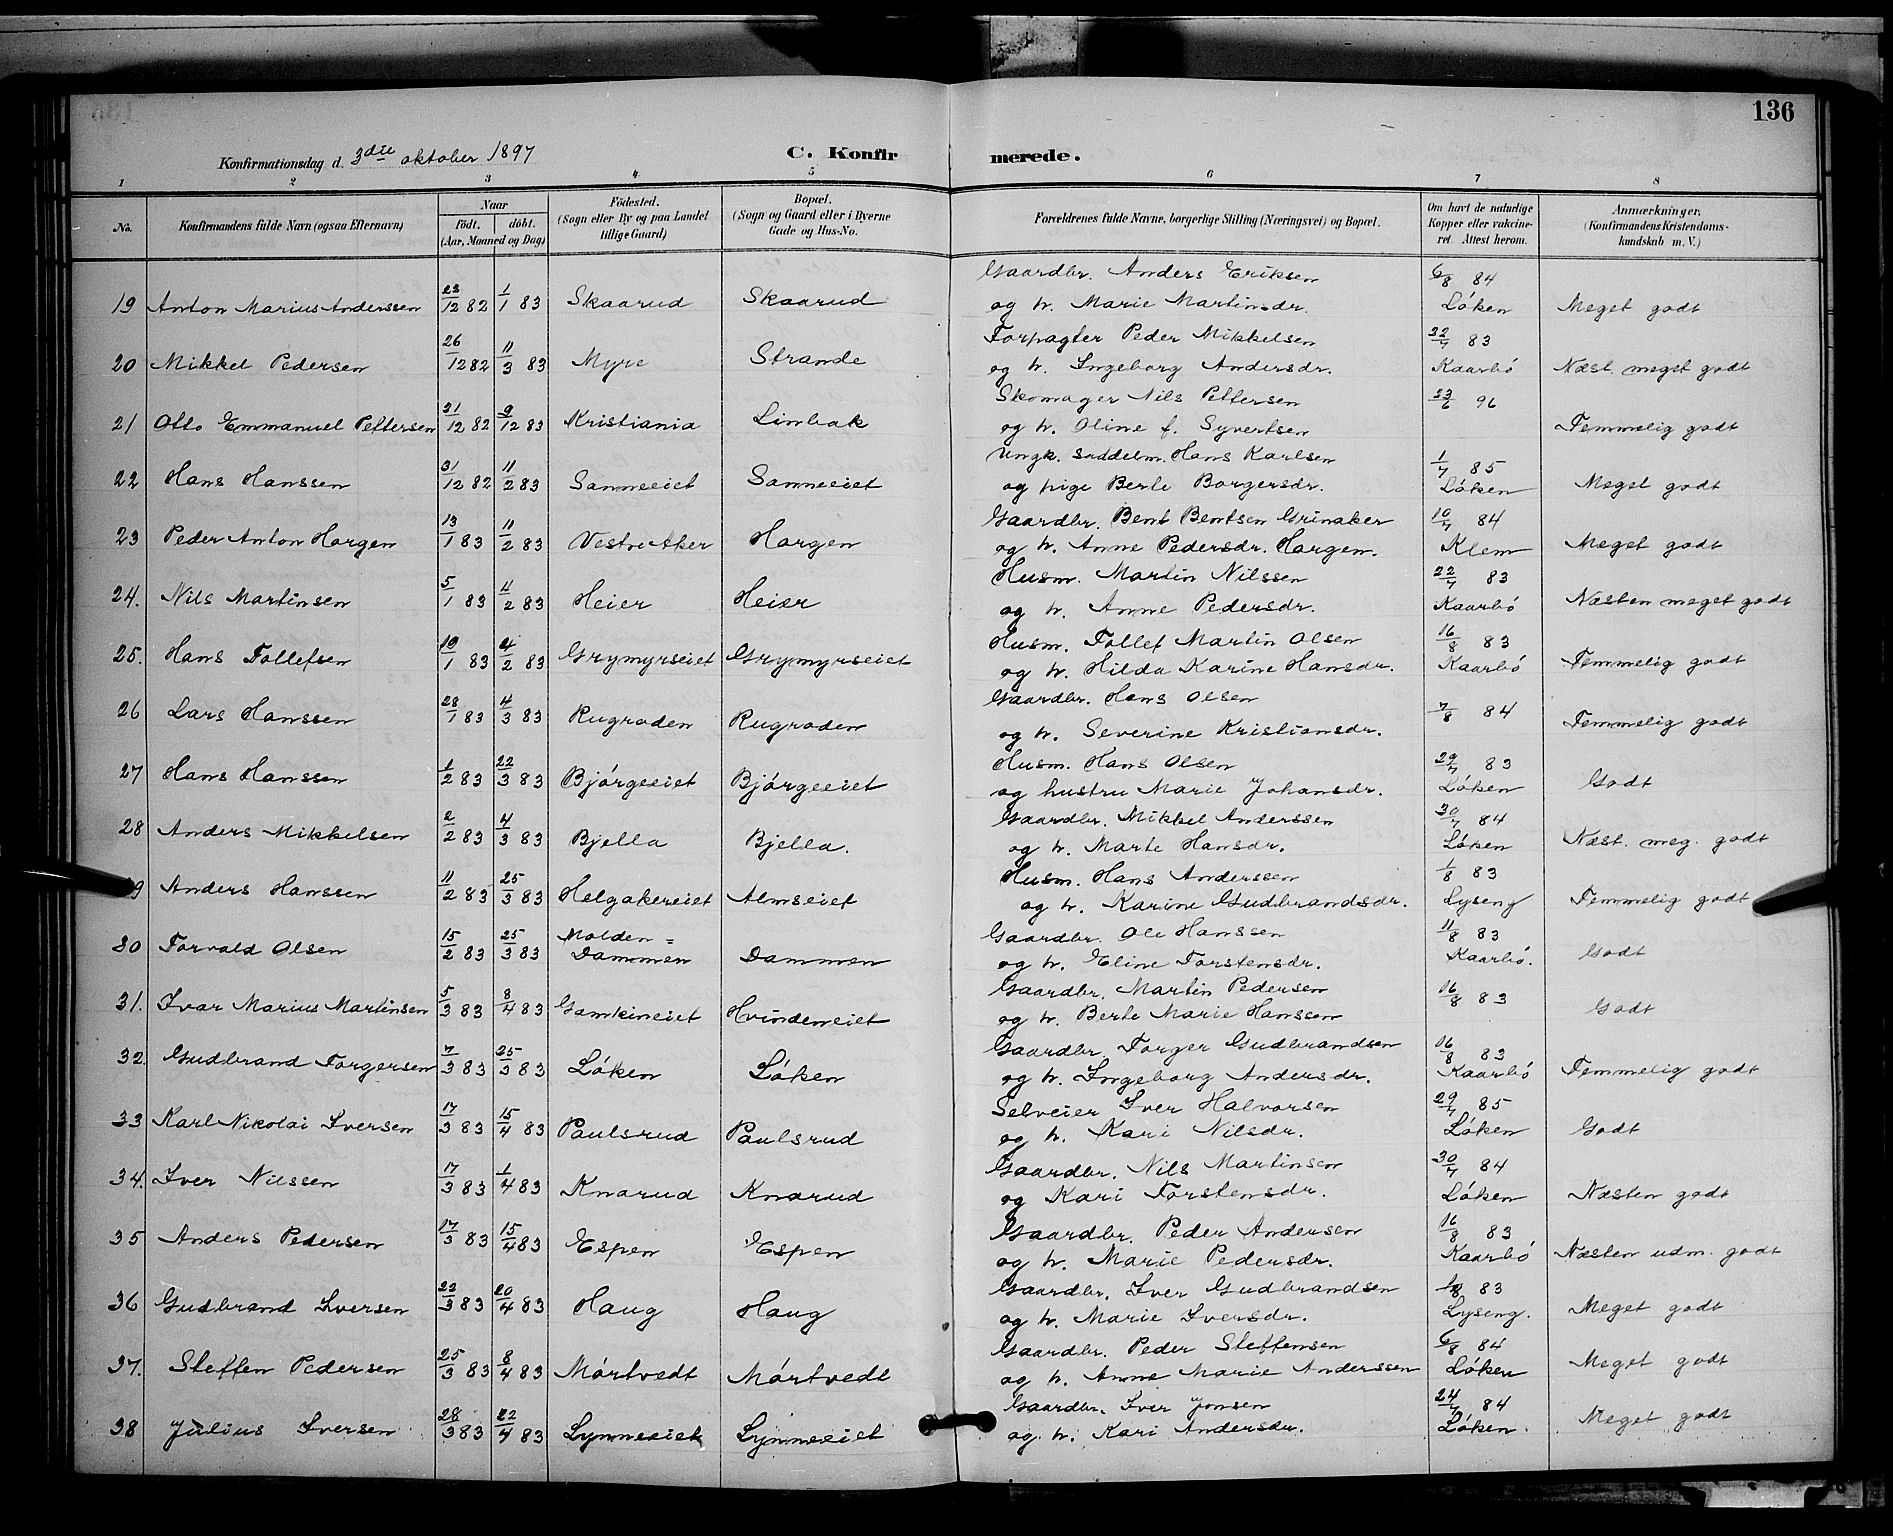 136
Konfirmationsdag d. 3die oktober 1897
C. Konfirmerede.
1 2 3 4 5 6 7 8
No.
Konfirmandens fulde Navn (ogsaa Efternavn)
Naar
födt. döbt.
(Aar, Maaned og Dag)
Födested.
(Sogn eller By og paa Landet
tillige Gaard)
Bopæl.
(Sogn og Gaard eller i Byerne
Gade og Hus-No.
Forældrenes fulde Navne, borgerlige Stilling (Næringsvei) og Bopæl.
Om havt de naturlige
Kopper eller vakcine-
ret. Attest herom.
Anmærkninger.
(Konfirmandens Kristendoms-
kundskab m. V.)
Gaardbr. Anders Eriksen 6/8 84
19 Anton Marius Anderssen 23/12 82 1/1 83 Skaarud Skaarud og h. Marie Martinsdr. Löken Meget godt
Forpagter Peder Mikkelsen 22/7 83
20 Mikkel Pedersen 26/12 82 11/3 83 Myre Strande og h. Ingeborg Andersdr. Kaarbö Næst. meget godt
Skomager Nils Pettersen 23/6 96
21 Otto Emmanuel Pettersen 31/12 82 9/12 83 Kristiania Linbak og h. Oline f. Syvertsen Temmelig godt
Ungk. saddelm. Hans Karlsen 1/7 85
22 Hans Hanssen 31/12 82 11/2 83 Sanneeiet Sanneeiet og pige Berte Borgersdr. Löken Meget godt
Gaardbr. Bent Bentsen Grinaker 10/7 84
23 Peder Anton Horgen 13/1 83 11/2 83 Vestre Aker Horgen og h. Anne Pedersdr. Horgen. Klem Meget godt
Husm. Martin Nilssen 22/7 83
24. Nils Martinsen 5/1 83 11/2 83 Heier Heier og h. Anne Pedersdr. Kaarbö Næsten meget godt
Husm. Tollef Martin Olsen 16/8 83
25. Hans Tollefsen 10/1 83 4/2 83 Grymyrseiet Grymyrseiet og h. Hilda Karine Hansdr. Kaarbö Temmelig godt
Gaardbr. Hans Olsen 7/8 84
26 Lars Hanssen 28/1 83 4/3 83 Rugroden Rugroden og h. Severine Kristiansdr. Temmelig godt
Husm. Hans Olsen 29/7 83
27 Hans Hanssen 1/2 83 22/3 83 Björgeeiet Björgeeiet og hustru Marie Johansdr. Löken Godt
Gaardbr. Mikkel Anderssen 30/7 84
28 Anders Mikkelsen 2/2 83 4/3 83 Bjella Bjella. og h. Marte Hansdr. Löken Næst. meg. godt
Husm. Hans Anderssen 1/8 83
9 Anders Hanssen 11/2 83 25/3 83 Helgakereiet Almseiet og h. Karine Gudbrandsdr. Lyseng Temmelig godt
Gaardbr. Ole Hanssen 11/8 83
30 Torvald Olsen 15/2 83 25/3 83 Molden=Dammen Dammen og h. Eline Torstensdr. Kaarbö. Godt
Gaardbr. Martin Pedersen 16/8 83
31. Ivar Marius Martinsen 5/3 83 8/4 83 Gamkineiet Hvindeneiet og h. Berte Marie Hanssen Godt
Gaardbr. Torger Gudbrandsen 16/8 83
32. Gudbrand Torgersen 7/3 83 25/3 83 Löken Löken og h. Ingeborg Andersdr. Kaarbö Temmelig godt
Selveier Iver Halvorsen 29/7 85
33 Karl Nikolai Iversen 17/3 83 15/4 83 Paulsrud Paulsrud og h. Kari Nilsdr. Löken Godt
Gaardbr. Nils Martinsen 30/7 84
34. Iver Nilssen 17/3 83 1/4 83 Knarud Knarud og Kari Torstensdr. Löken Næsten godt
Gaardbr. Peder Andersen 16/8 83
35 Anders Pedersen 17/3 83 15/4 83 Espen Espen og h. Marie Pedersdr. Kaarbö Næsten udm. godt
Gaardbr. Iver Gudbrandsen 83
36 Gudbrand Iversen 23/3 83 20/4 83 Haug Haug og h. Marie Iversdr. Lyseng. Meget godt
Gaardbr. Peder Steffensen 6/8 84
37. Steffen Pedersen 25/3 83 8/4 83 Mörtvedt Mörtvedt og h. Anne Marie Anderssen Löken Meget godt
Gaardbr. Iver Jonsen 24/7 84
38 Julius Iversen 28/3 83 22/4 83 Lynneeiet Lynneeiet og h. Kari Andersdr. Löken. Meget godt